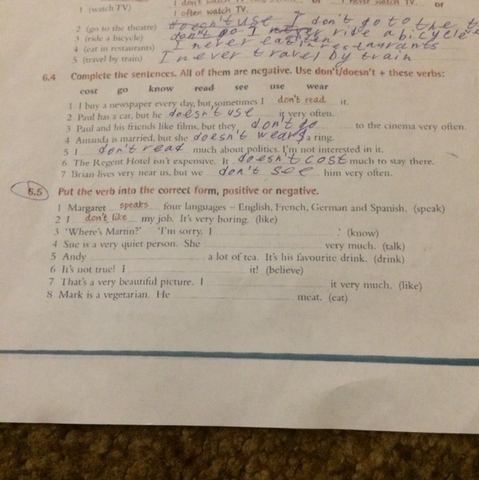 I don't watch TV or I never watch TV. or
1 (watch TV) I often watch TV.
2 (go to the theatre) doesn't use I don't go to the t
3 (ride a bicycle) don't go I never ride a bicycle
4 (eat in restaurants) I never eat in restaurants
5 (travel by train) I never travel by train
6.4 Complete the sentences. All of them are negative. Use don't/doesn't + these verbs:
cost go know read see use wear
1 I buy a newspaper every day, but sometimes I don't read it.
2 Paul has a car, but he doesn't use it very often.
3 Paul and his friends like films, but they don't go to the cinema very often.
4 Amanda is married, but she doesn't wears a ring.
5 I don't read much about politics. I'm not interested in it.
6 The Regent Hotel isn't expensive. It doesn't cost much to stay there.
7 Brian lives very near us, but we don't see him very often.
6.5 Put the verb into the correct form, positive or negative.
1 Margaret speaks four languages – English, French, German and Spanish. (speak)
2 I don't like my job. It's very boring. (like)
3 'Where's Martin?' 'I'm sorry. I .' (know)
4 Sue is a very quiet person. She very much. (talk)
5 Andy a lot of tea. It's his favourite drink. (drink)
6 It's not true! I it! (believe)
7 That's a very beautiful picture. I it very much. (like)
8 Mark is a vegetarian. He meat. (eat)